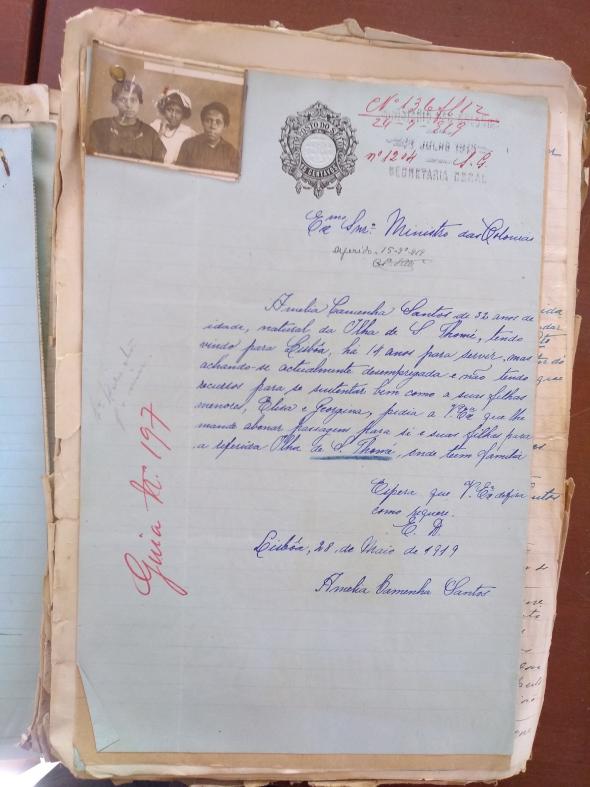 Nº 136 fl 12
MINISTERIO DAS COLONIAS
24-7-919
24 JULHO 1919
nº 1204 S.G
SECRETARIA GERAL
Exmo Snr. Ministro das Colonias
deferido. 15-7º-919
Amelia Camenha Santos de 32 anos de
idade, natural da Ilha de S Thomé, tendo
vindo para Lisbôa, há 14 anos para servir, mas
achando-se actualmente desempregada e não tendo
recursos para se sustentar bem como a suas filhas
menores, Elisa e Georgina, pedia a V. Exª que lhe
mande abonar passagem para si e suas filhas para
a referida Ilha de S. Thomé, onde teem familia
Espera que V. Exª defira
como requere.
E. D.
Lisbôa, 28 de Maio de 1919
Amelia Camenha Santos
Guia Nº 197